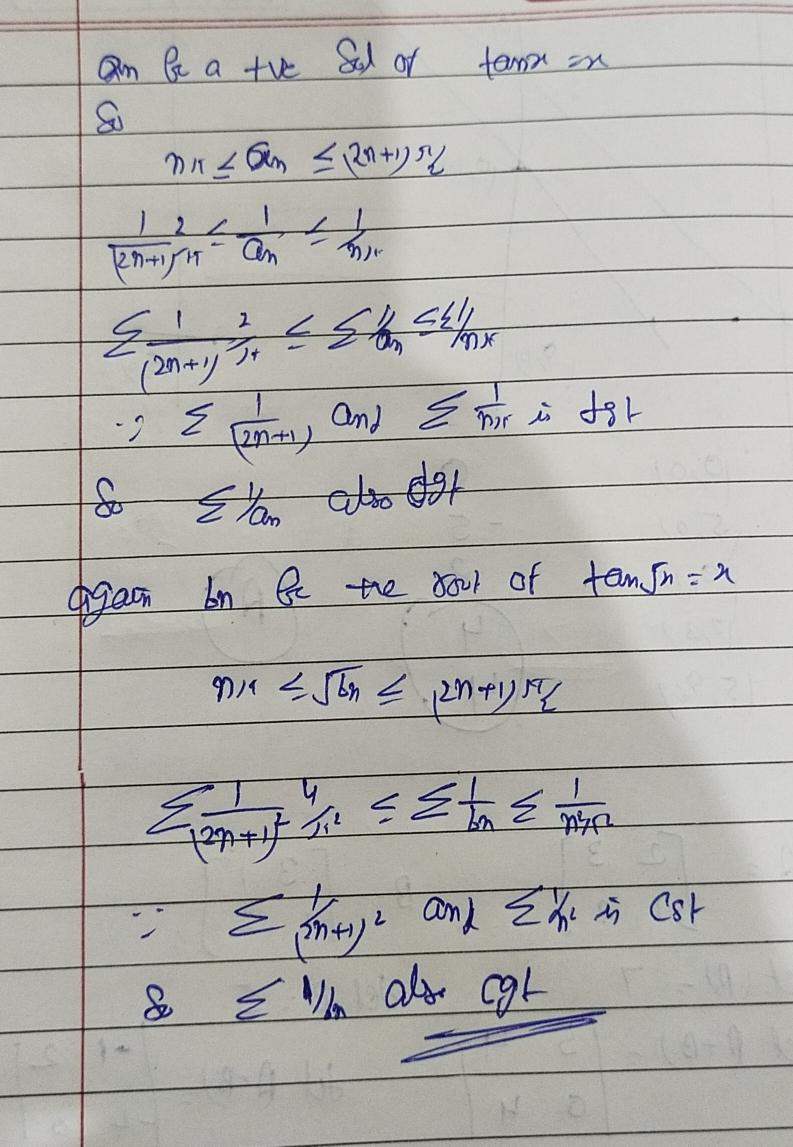 an be a +ve Sol of tanx = x
So
nπ ≤ an ≤ (2n+1)π/2
1/(2n+1) 2/π ≤ 1/an ≤ 1/nπ
Σ 1/(2n+1) 2/π ≤ Σ 1/an ≤ Σ 1/nπ
∵ Σ 1/(2n+1) and Σ 1/nπ is dgt
So Σ 1/an also dgt
again bn be +ve root of tan√x = x
nπ ≤ √bn ≤ (2n+1)π/2
Σ 1/(2n+1)² 4/π² ≤ Σ 1/bn ≤ 1/n²π²
∵ Σ 1/(2n+1)² and Σ 1/n² is Cgt
So Σ 1/bn also cgt